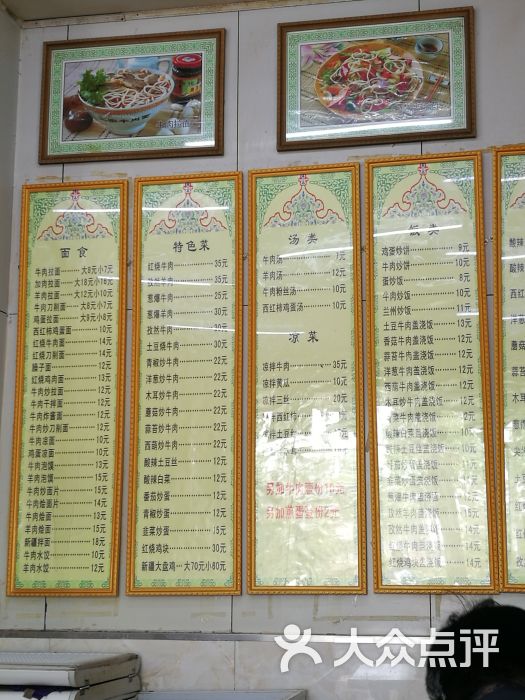 牛肉拉面
面食
牛肉拉面 大8元小7元
加肉拉面 大18元小16元
羊肉拉面 大12元小10元
牛肉刀削面 大8元小7元
鸡蛋拉面 大9元小8元
西红柿鸡蛋面 10元
红烧牛肉面 14元
红烧刀削面 14元
臊子面 12元
红烧鸡肉面 12元
牛肉炒拉面 12元
牛肉干拌面 12元
牛肉炸酱面 10元
牛肉炒刀削面 12元
牛肉凉面 10元
鸡蛋凉面 10元
牛肉泡馍 13元
羊肉泡馍 15元
牛肉炒面片 14元
牛肉烩面 13元
羊肉烩面 15元
新疆拌面 18元
牛肉水饺 10元
羊肉水饺 12元
特色菜
红烧牛肉 35元
孜然羊肉 35元
葱爆牛肉 25元
葱爆羊肉 30元
孜然牛肉 30元
土豆烧牛肉 30元
青椒炒牛肉 22元
洋葱炒牛肉 22元
木耳炒牛肉 22元
蘑菇炒牛肉 22元
蒜苔炒牛肉 22元
西葫炒牛肉 22元
酸辣土豆丝 12元
酸辣白菜 12元
番茄炒蛋 12元
青椒炒蛋 12元
韭菜炒蛋 15元
红烧鸡块 30元
新疆大盘鸡 大70元小80元
汤类
牛肉汤 7元
羊肉汤 12元
牛肉粉丝汤 10元
西红柿鸡蛋汤 10元
凉菜
凉拌牛肉 35元
凉拌黄瓜 10元
凉拌三丝 20元
12元
10元
另加牛肉壹份10元
另加煎蛋壹份2元
饭类
鸡蛋炒饼 9元
牛肉炒饼 10元
蛋炒饭 8元
牛肉炒饭 10元
兰州炒饭 11元
土豆牛肉盖浇饭 13元
香菇牛肉盖浇饭 12元
蒜苔牛肉盖浇饭 12元
洋葱牛肉盖浇饭 12元
西葫牛肉盖浇饭 12元
木耳炒牛肉盖浇饭 12元
12元
酸辣白菜盖浇饭 10元
酸辣土豆丝盖浇饭 10元
番茄炒蛋盖浇饭 12元
韭菜炒蛋盖浇饭 12元
葱爆牛肉盖浇饭 12元
孜然牛肉盖浇饭 15元
孜然羊肉盖浇饭 14元
红烧牛肉盖浇饭 14元
红烧鸡块盖浇饭 14元
大众点评